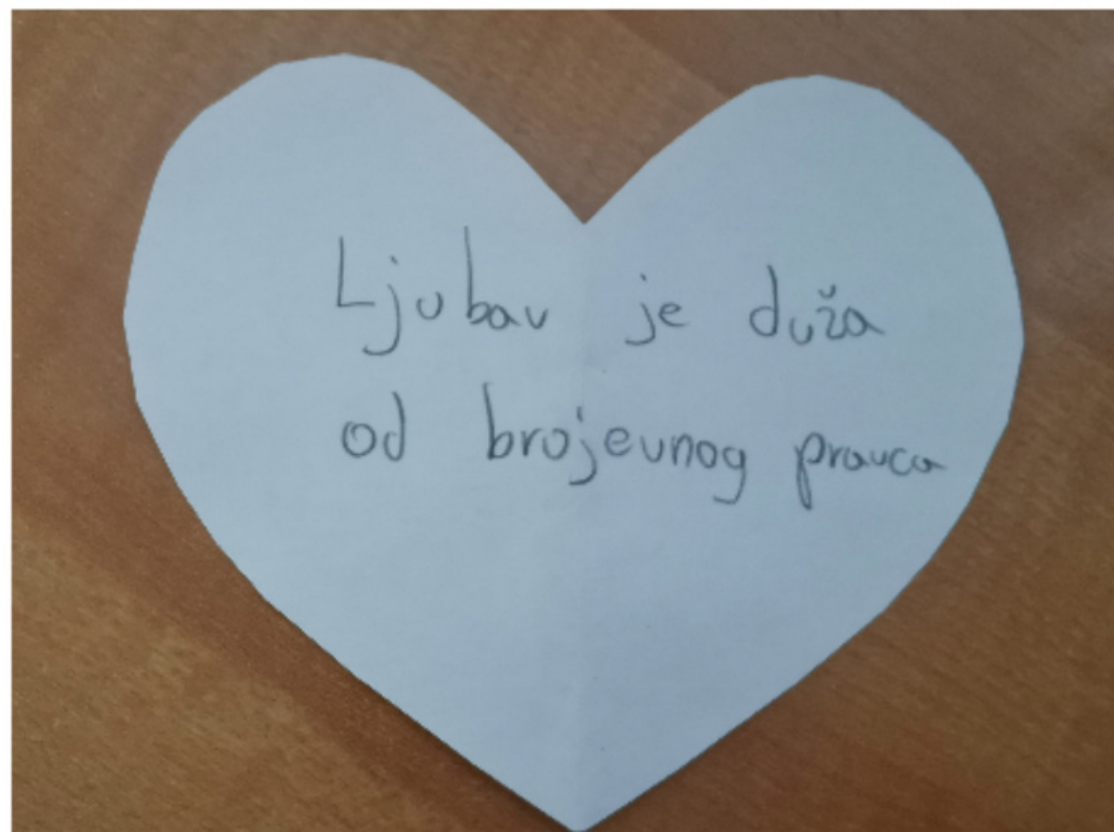 Ljubav je duža
od brojevnog pravca